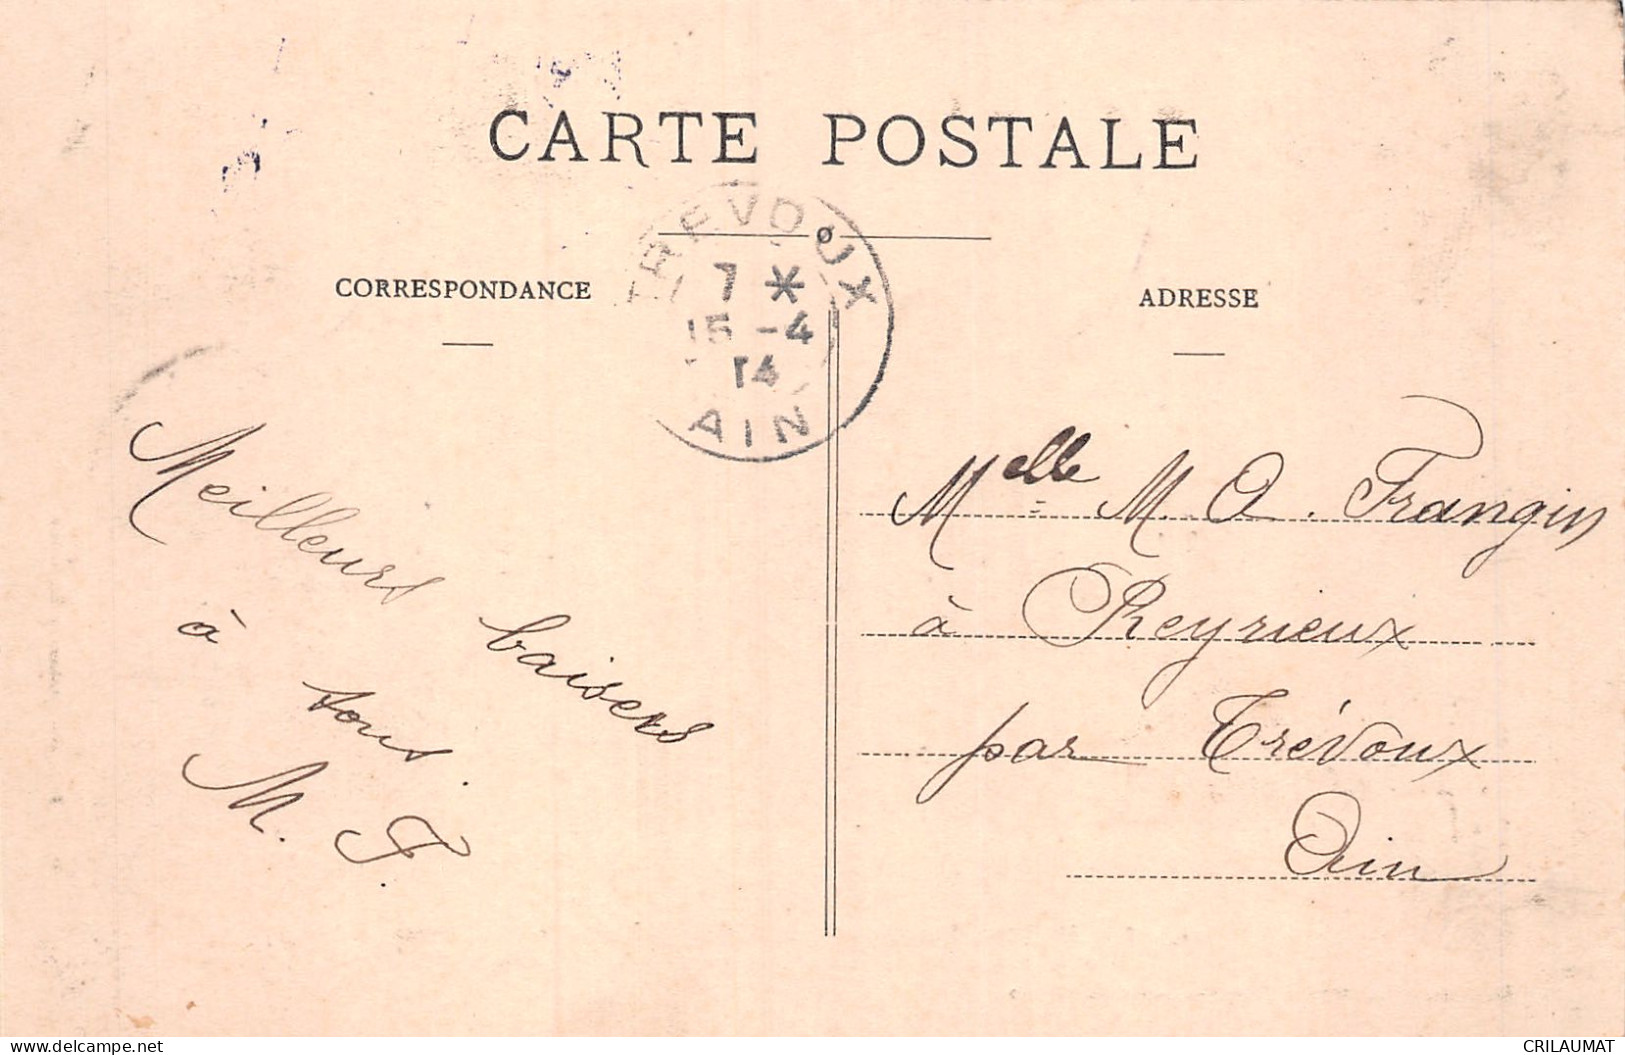 CARTE POSTALE
TREVOUX
7 *
15 -4
14
AIN
CORRESPONDANCE
ADRESSE
Meilleurs baisers
à tous.
M. F.
Melle M. A. Frangin
à Reyrieux
par Trévoux
Ain
www.delcampe.net
CRILAUMAT